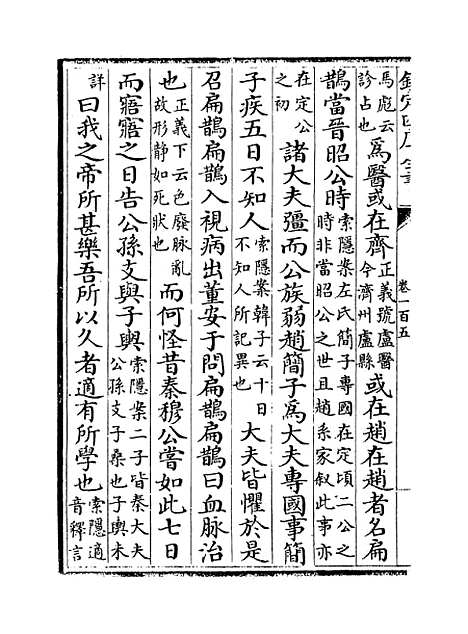 欽定四庫全書
卷一百五
馬彪云診占也為醫或在齊正義號盧醫今濟州盧縣或在趙在趙者名扁
鵲當晉昭公時索隱案左氏簡子專國在定頃二公之時非當昭公之世且趙系家叙此事亦
在定公之初諸大夫彊而公族弱趙簡子為大夫專國事簡
子疾五日不知人索隱案韓子云十日不知人所記異也大夫皆懼於是
召扁鵲扁鵲入視病出董安于問扁鵲扁鵲曰血脉治
也正義下云色廢脉亂故形静如死狀也而何怪昔秦穆公嘗如此七日
而寤寤之日告公孫支與子輿索隱案二子皆秦大夫公孫支子桑也子輿未
詳曰我之帝所甚樂吾所以久者適有所學也索隱適音釋言